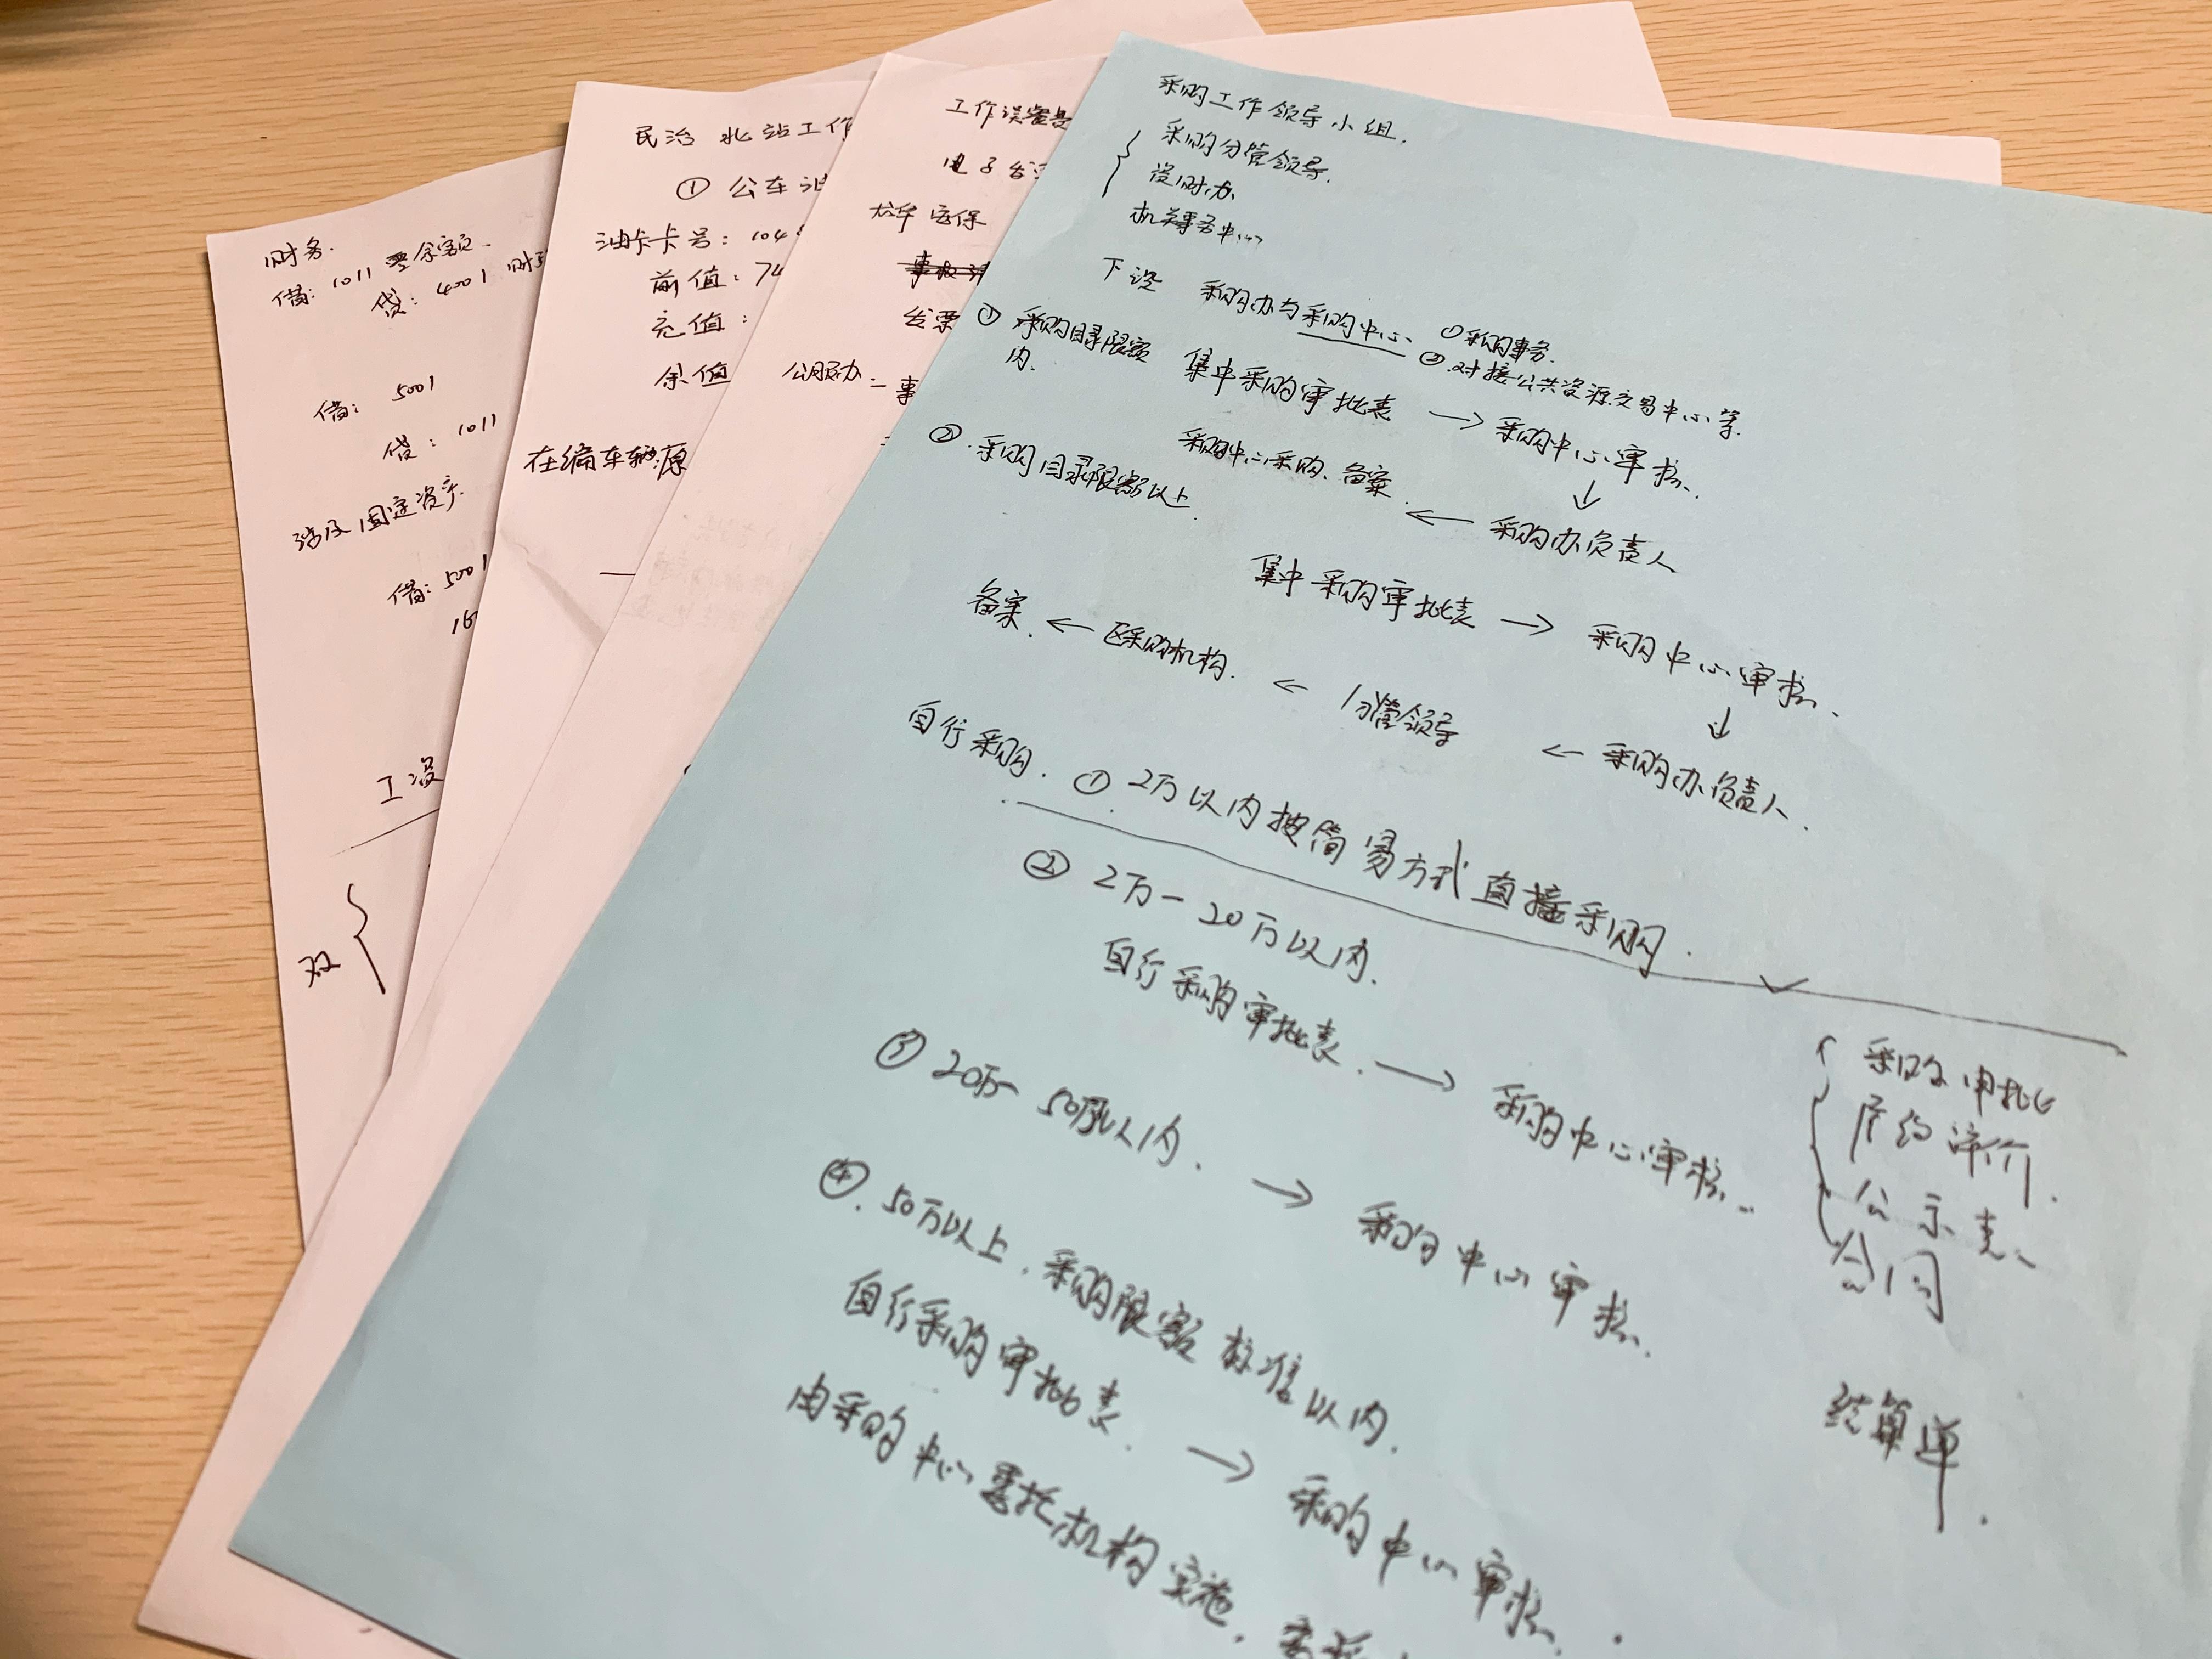 财务.
借: 1011 零余额.
贷: 4001 财
借: 5001
贷: 1011
涉及固定资产
借: 5001
16
工资
双
民治 北站工作
① 公车油
油卡卡号: 104
前值: 74
充值:
余值
在编车辆源
工作误餐费
电子发
大华 安保
发票
公服办
采购工作领导小组.
采购分管领导.
资财办
机关事务中心
下设 采购办与采购中心 ①采购事务.
②.对接公共资源交易中心等.
① 采购目录限额内.
集中采购审批表 → 采购中心审核.
↓
采购中心采购、备案. ← 采购办负责人
②.采购目录限额以上.
集中采购审批表 → 采购中心审核.
↓
备案. ← 区采购机构. ← 分管领导 ← 采购办负责人.
自行采购. ① 2万以内按简易方式直接采购.
② 2万-20万以内.
自行采购审批表. → 采购中心审核.
③ 20万-50万以内. → 采购中心审核.
④.50万以上.采购限额标准以内.
自行采购审批表. → 采购中心审核.
由采购中心委托机构实施,
采购审批
评价.
公示表
合同
结算单.